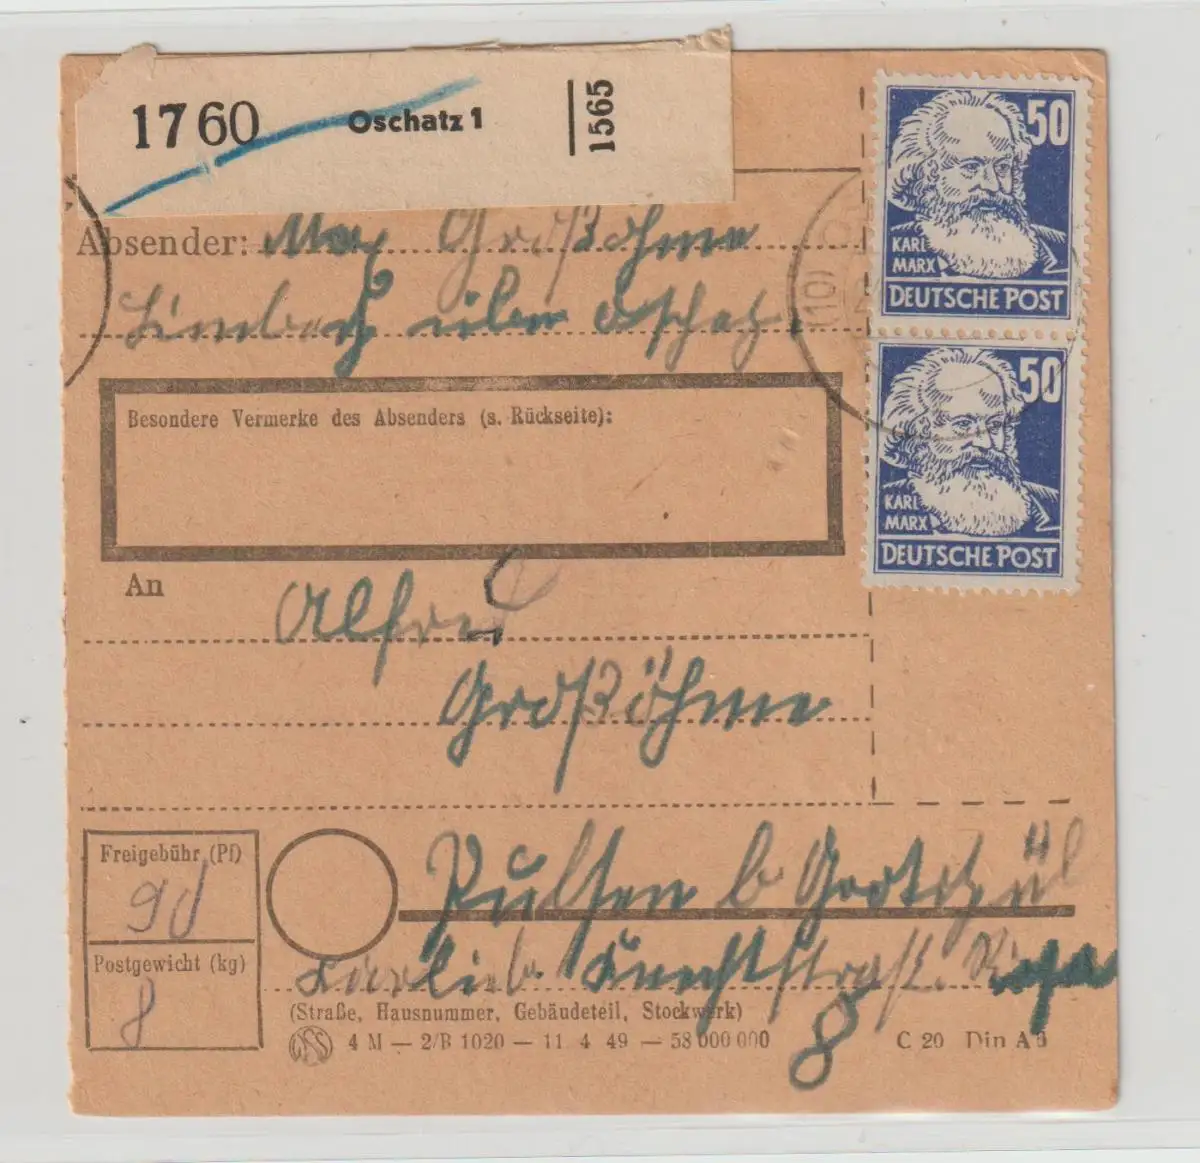 1760 Oschatz 1 1565
Absender: Max Großöhme
Limbach über Oschatz.
(10)
50
KARL
MARX
DEUTSCHE POST
50
KARL
MARX
DEUTSCHE POST
Besondere Vermerke des Absenders (s. Rückseite):
An
Alfred
Großöhme
Freigebühr (Pf)
90
Postgewicht (kg)
8
Pulsen b
Knechtstraß. Riesa
8
(Straße, Hausnummer, Gebäudeteil, Stockwerk)
4 M — 2/B 1020 — 11 4 49 — 58 000 000 C 20 Din A 6